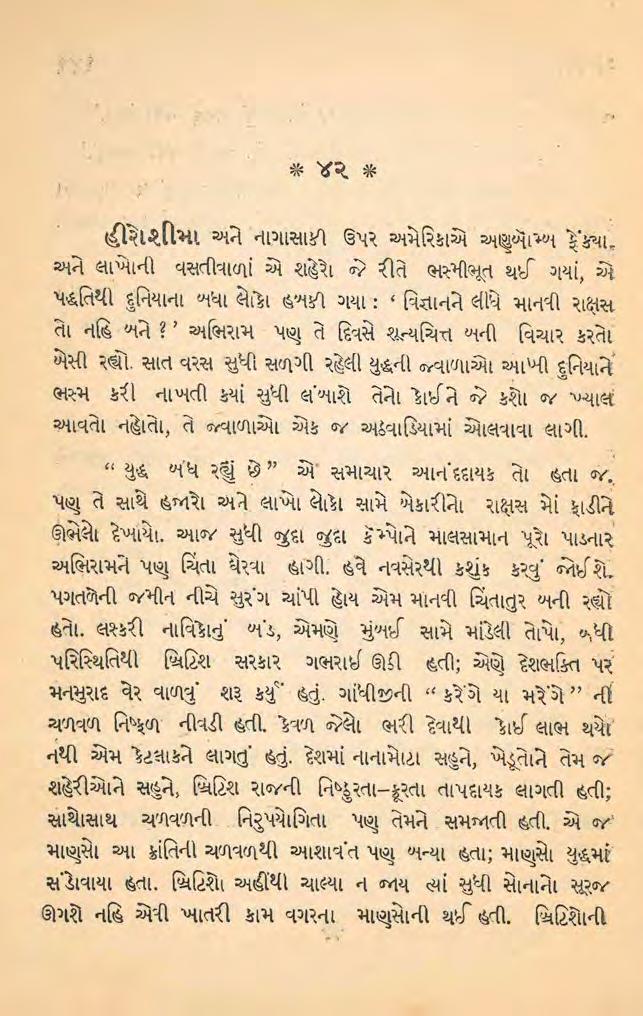 * ૪૨ *
હીરોશીમા અને નાગાસાકી ઉપર અમેરિકાએ અણુબૉમ્બ ફેંક્યા,
અને લાખોની વસતીવાળાં એ શહેરો જે રીતે ભસ્મીભૂત થઈ ગયાં, એ
પદ્ધતિથી દુનિયાના બધા લોકો હબકી ગયા : ‘ વિજ્ઞાનને લીધે માનવી રાક્ષસ
તો નહિ બને ? ’ અભિરામ પણ તે દિવસે શૂન્યચિત્ત બની વિચાર કરતો
બેસી રહ્યો. સાત વરસ સુધી સળગી રહેલી યુદ્ધની જ્વાળાઓ આખી દુનિયાને
ભસ્મ કરી નાખતી ક્યાં સુધી લંબાશે તેનો કોઈને જે કશો જ ખ્યાલ
આવતો નહોતો, તે જ્વાળાઓ એક જ અઠવાડિયામાં ઓલવાવા લાગી.
“ યુદ્ધ બંધ રહ્યું છે ” એ સમાચાર આનંદદાયક તો હતા જ,
પણ તે સાથે હજારો અને લાખો લોકો સામે બેકારીનો રાક્ષસ મોં ફાડીને
ઊભેલો દેખાયો. આજ સુધી જુદા જુદા કૅમ્પોને માલસામાન પૂરો પાડનાર
અભિરામને પણ ચિંતા ઘેરવા લાગી. હવે નવસેરથી કશુંક કરવું જોઈશે.
પગતળેની જમીન નીચે સુરંગ ચાંપી હોય એમ માનવી ચિંતાતુર બની રહ્યો
હતો. લશ્કરી નાવિકોનું બંડ, એમણે મુંબઈ સામે માંડેલી તોપો, બધી
પરિસ્થિતિથી બ્રિટિશ સરકાર ગભરાઈ ઊઠી હતી; એણે દેશભક્તિ પર
મનમુરાદ વેર વાળવું શરૂ કર્યું હતું. ગાંધીજીની “ કરેંગે યા મરેંગે ” ની
ચળવળ નિષ્ફળ નીવડી હતી. કેવળ જેલો ભરી દેવાથી કોઈ લાભ થયો
નથી એમ કેટલાકને લાગતું હતું. દેશમાં નાનામોટા સહુને, ખેડૂતોને તેમ જ
શહેરીઓને સહુને, બ્રિટિશ રાજની નિષ્ઠુરતા–ક્રૂરતા તાપદાયક લાગતી હતી;
સાથોસાથ ચળવળની નિરુપયોગિતા પણ તેમને સમજાતી હતી. એ જ
માણસો આ ક્રાંતિની ચળવળથી આશાવંત પણ બન્યા હતા; માણસો યુદ્ધમાં
સંડોવાયા હતા. બ્રિટિશો અહીંથી ચાલ્યા ન જાય ત્યાં સુધી સોનાનો સૂરજ
ઊગશે નહિ એવી ખાતરી કામ વગરના માણસોની થઈ હતી. બ્રિટિશોની